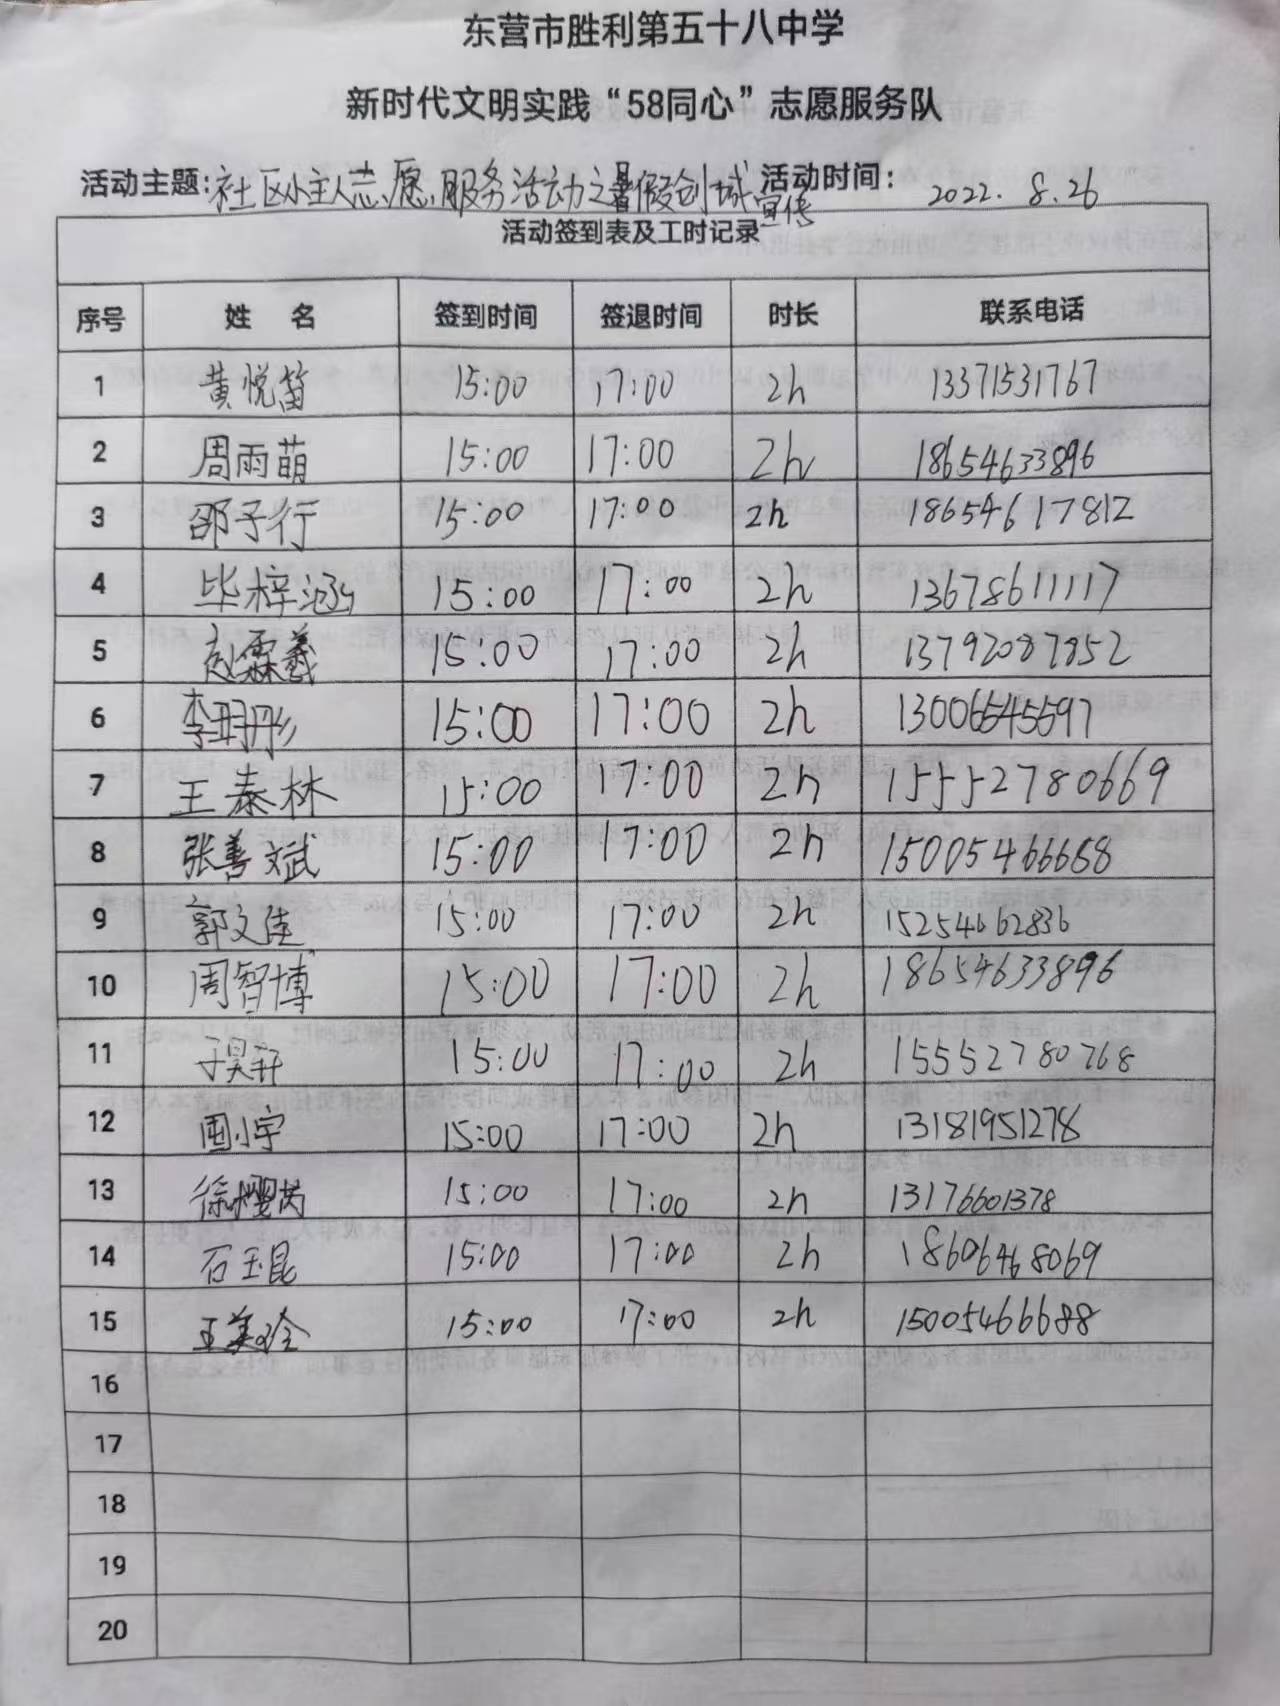 东营市胜利第五十八中学
新时代文明实践“58同心”志愿服务队
活动主题:社区小主人志愿服务活动之暑假创城宣传 活动时间: 2022.8.26
活动签到表及工时记录
序号 姓 名 签到时间 签退时间 时长 联系电话
1 黄悦笛 15:00 17:00 2h 13371531767
2 周雨萌 15:00 17:00 2h 18654633896
3 邵子行 15:00 17:00 2h 18654617812
4 毕梓涵 15:00 17:00 2h 13678611117
5 赵霖羲 15:00 17:00 2h 13792087852
6 李玥彤 15:00 17:00 2h
7 王泰林 15:00 17:00 2h 15552780669
8 张善斌 15:00 17:00 2h 15005466688
9 郭文佳 15:00 17:00 2h 15254662836
10 周智博 15:00 17:00 2h 18654633896
11 于昊轩 15:00 17:00 2h 15552780768
12 周小宇 15:00 17:00 2h 13181951278
13 徐樱芮 15:00 17:00 2h 13176601378
14 石玉昆 15:00 17:00 2h 18606468069
15 王美玲 15:00 17:00 2h 15005466688
16
17
18
19
20